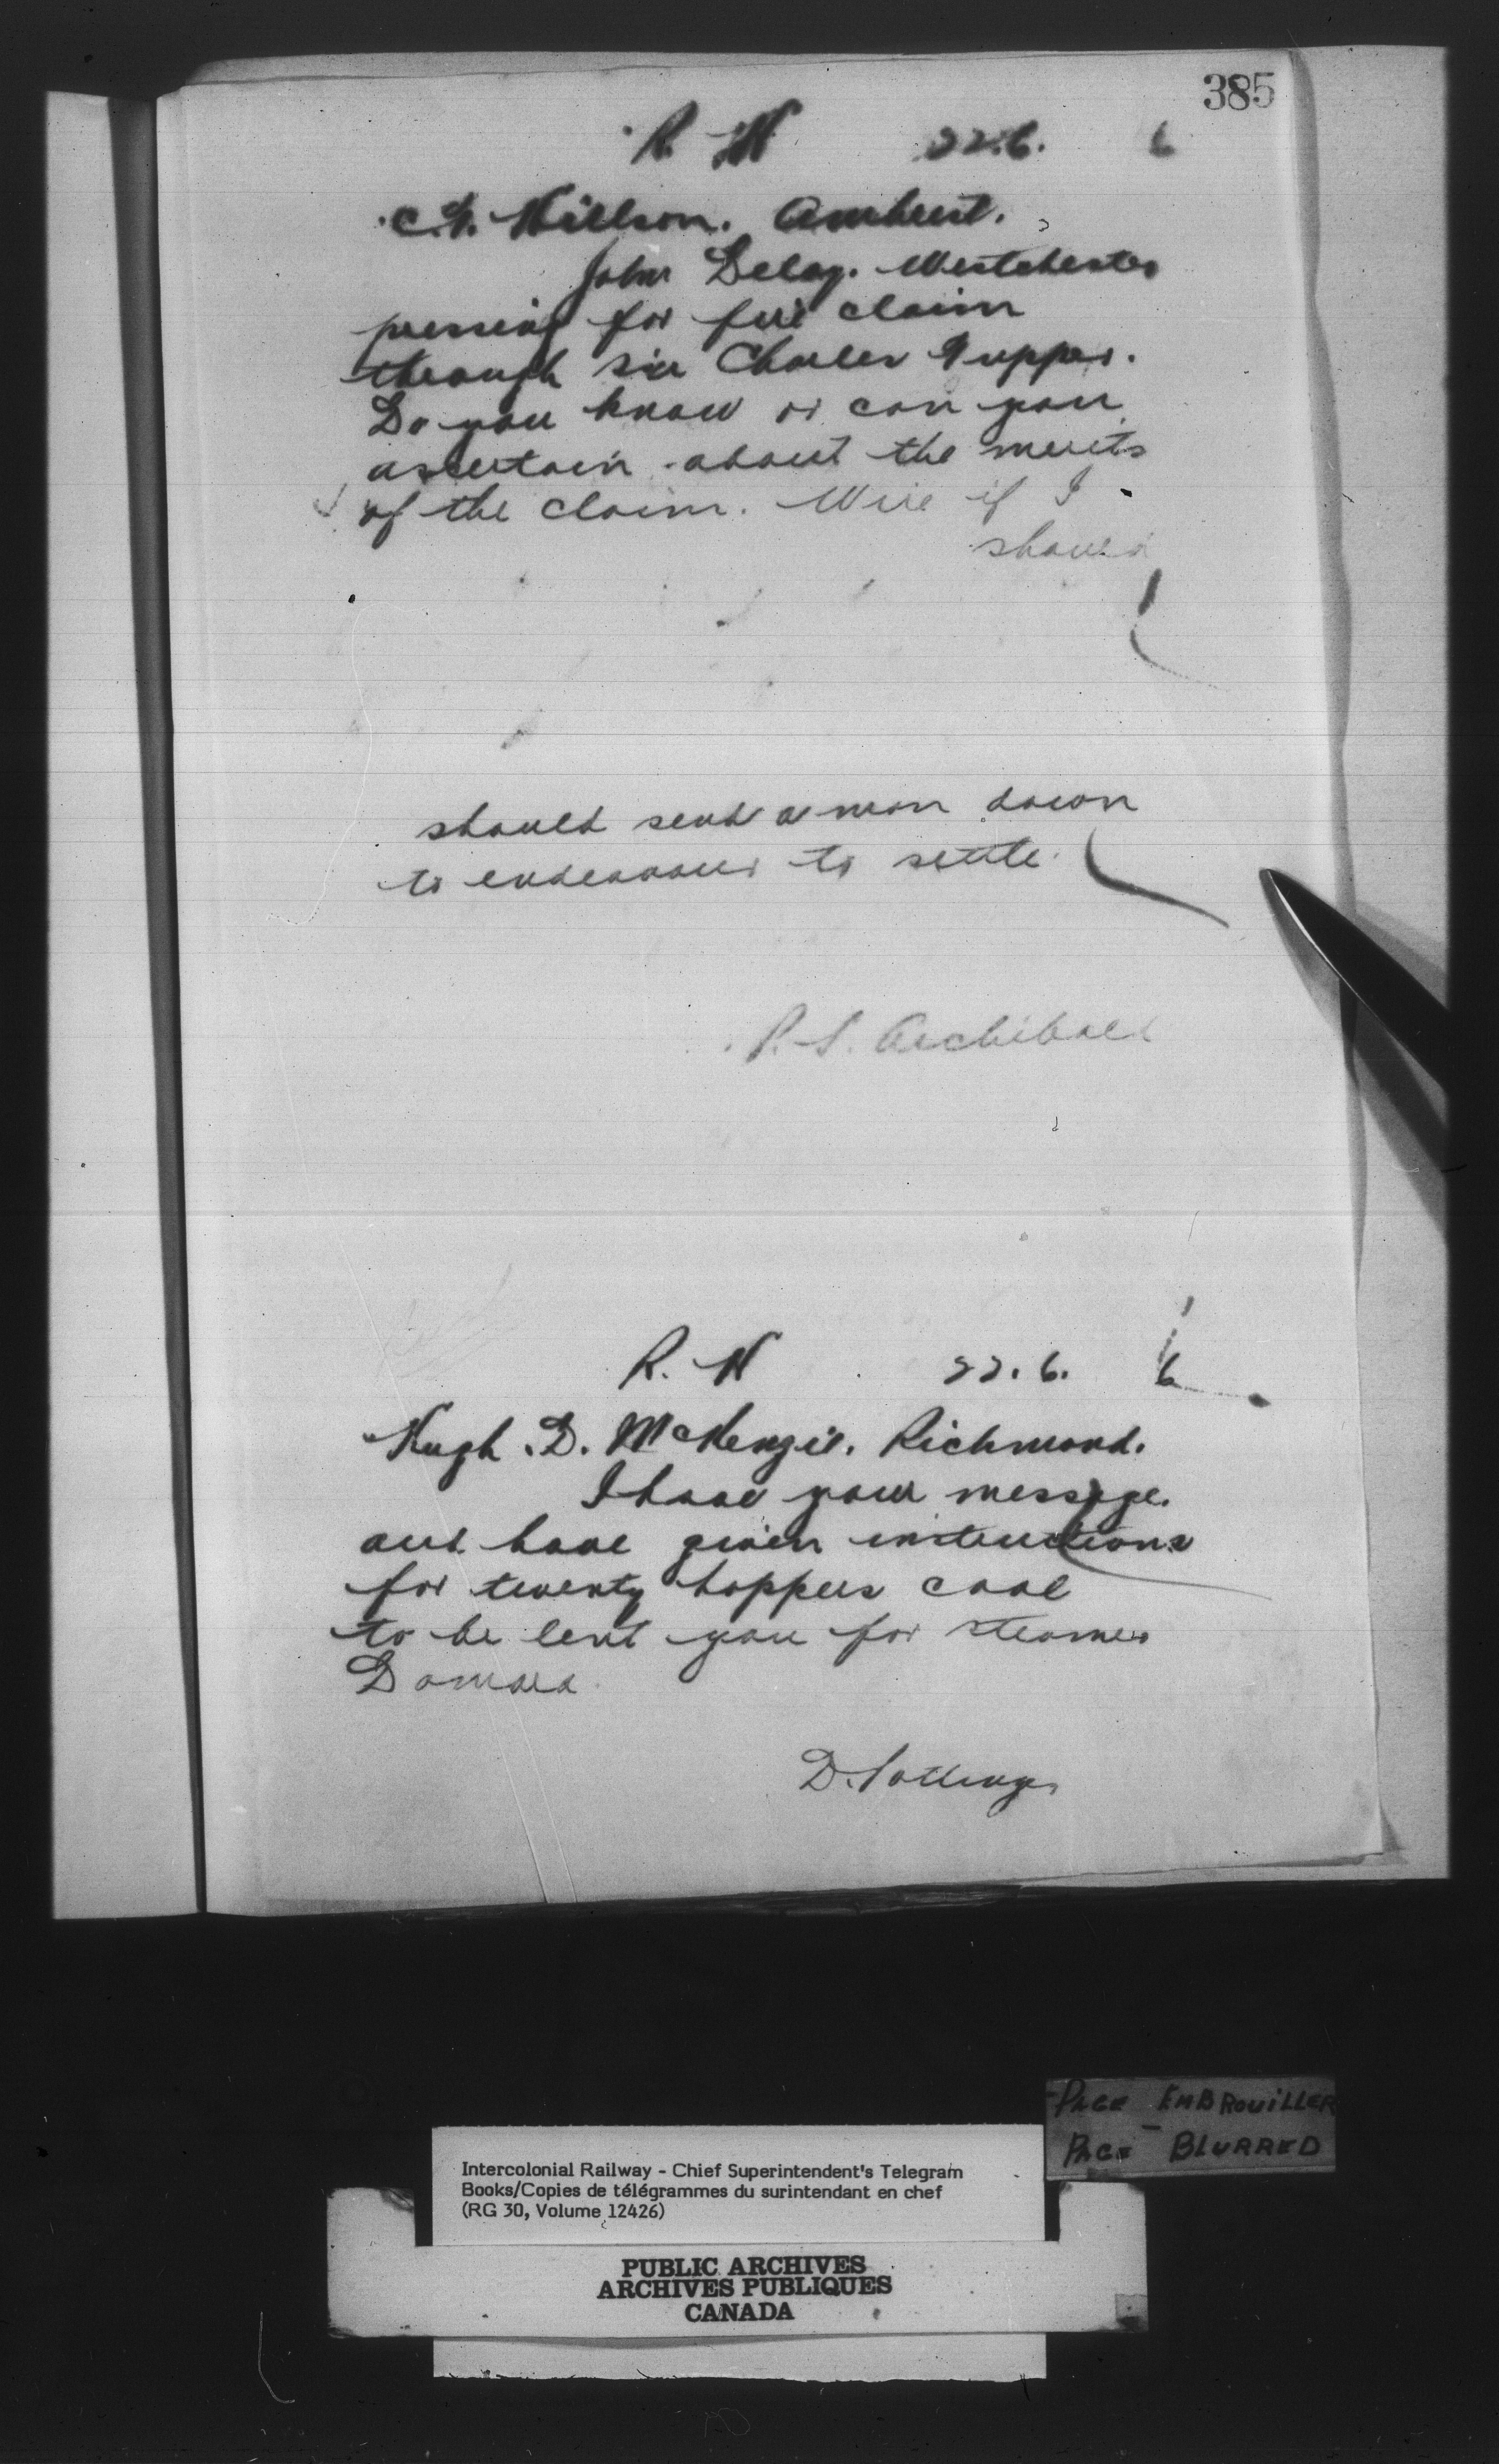 385
R. N 22.6. 6
C. Hillson. Amherst.
John Delay. Westchester
pressing for fire claim
through Sir Charles Tupper.
Do you know or can you
ascertain about the merits
of the claim. Wire if I
should
should send a man down
to endeavour to settle.
P. S. Archibald
R. N 22. 6. 6
Hugh. D. McKenzie. Richmond.
I have your message.
and have given instructions
for twenty hoppers coal
to be lent you for steamer
Damara
D. Pottinger
PAGE EMBROUILLER
PAGE BLURRED
Intercolonial Railway - Chief Superintendent's Telegram
Books/Copies de télégrammes du surintendant en chef
(RG 30, Volume 12426)
PUBLIC ARCHIVES
ARCHIVES PUBLIQUES
CANADA